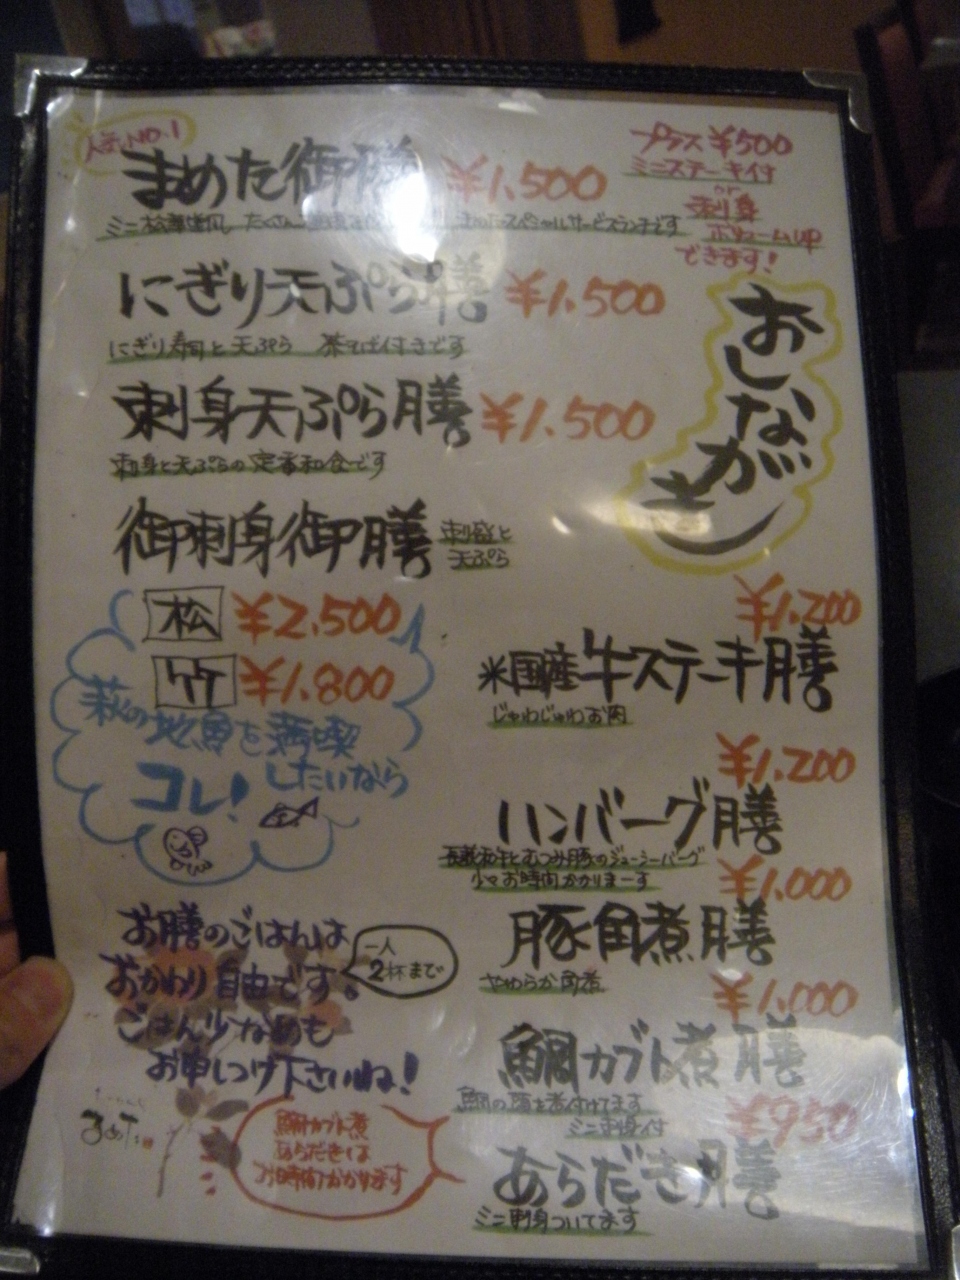 人気NO.1
まめた御膳 ¥1,500
プラス¥500
ミニステーキ付
or
刺身
ボリュームUP
できます!
ミニ松華堂風 たくさん まめたスペシャルサービスランチです
にぎり天ぷら膳 ¥1,500
にぎり寿司と天ぷら 茶そば付きです
おしながき
刺身天ぷら膳 ¥1,500
刺身と天ぷらの定番和食です
御刺身御膳 刺盛と
天ぷら
松 ¥2,500
竹 ¥1,800
萩の地魚を満喫
したいなら
コレ!
¥1,200
米国産牛ステーキ膳
じゅわじゅわお肉
¥1,200
ハンバーグ膳
長萩和牛とむつみ豚のジューシーバーグ
少々お時間かかりまーす
¥1,000
豚角煮膳
やわらか角煮
¥1,000
鯛カブト煮膳
鯛の頭を煮付けてます
ミニ刺身付
¥950
あらだき膳
ミニ刺身ついてます
お膳のごはんは
おかわり自由です。
一人
2杯まで
ごはん少なめも
お申しつけ下さいね!
まめた
鯛カブト煮
あらだきは
お時間かかります